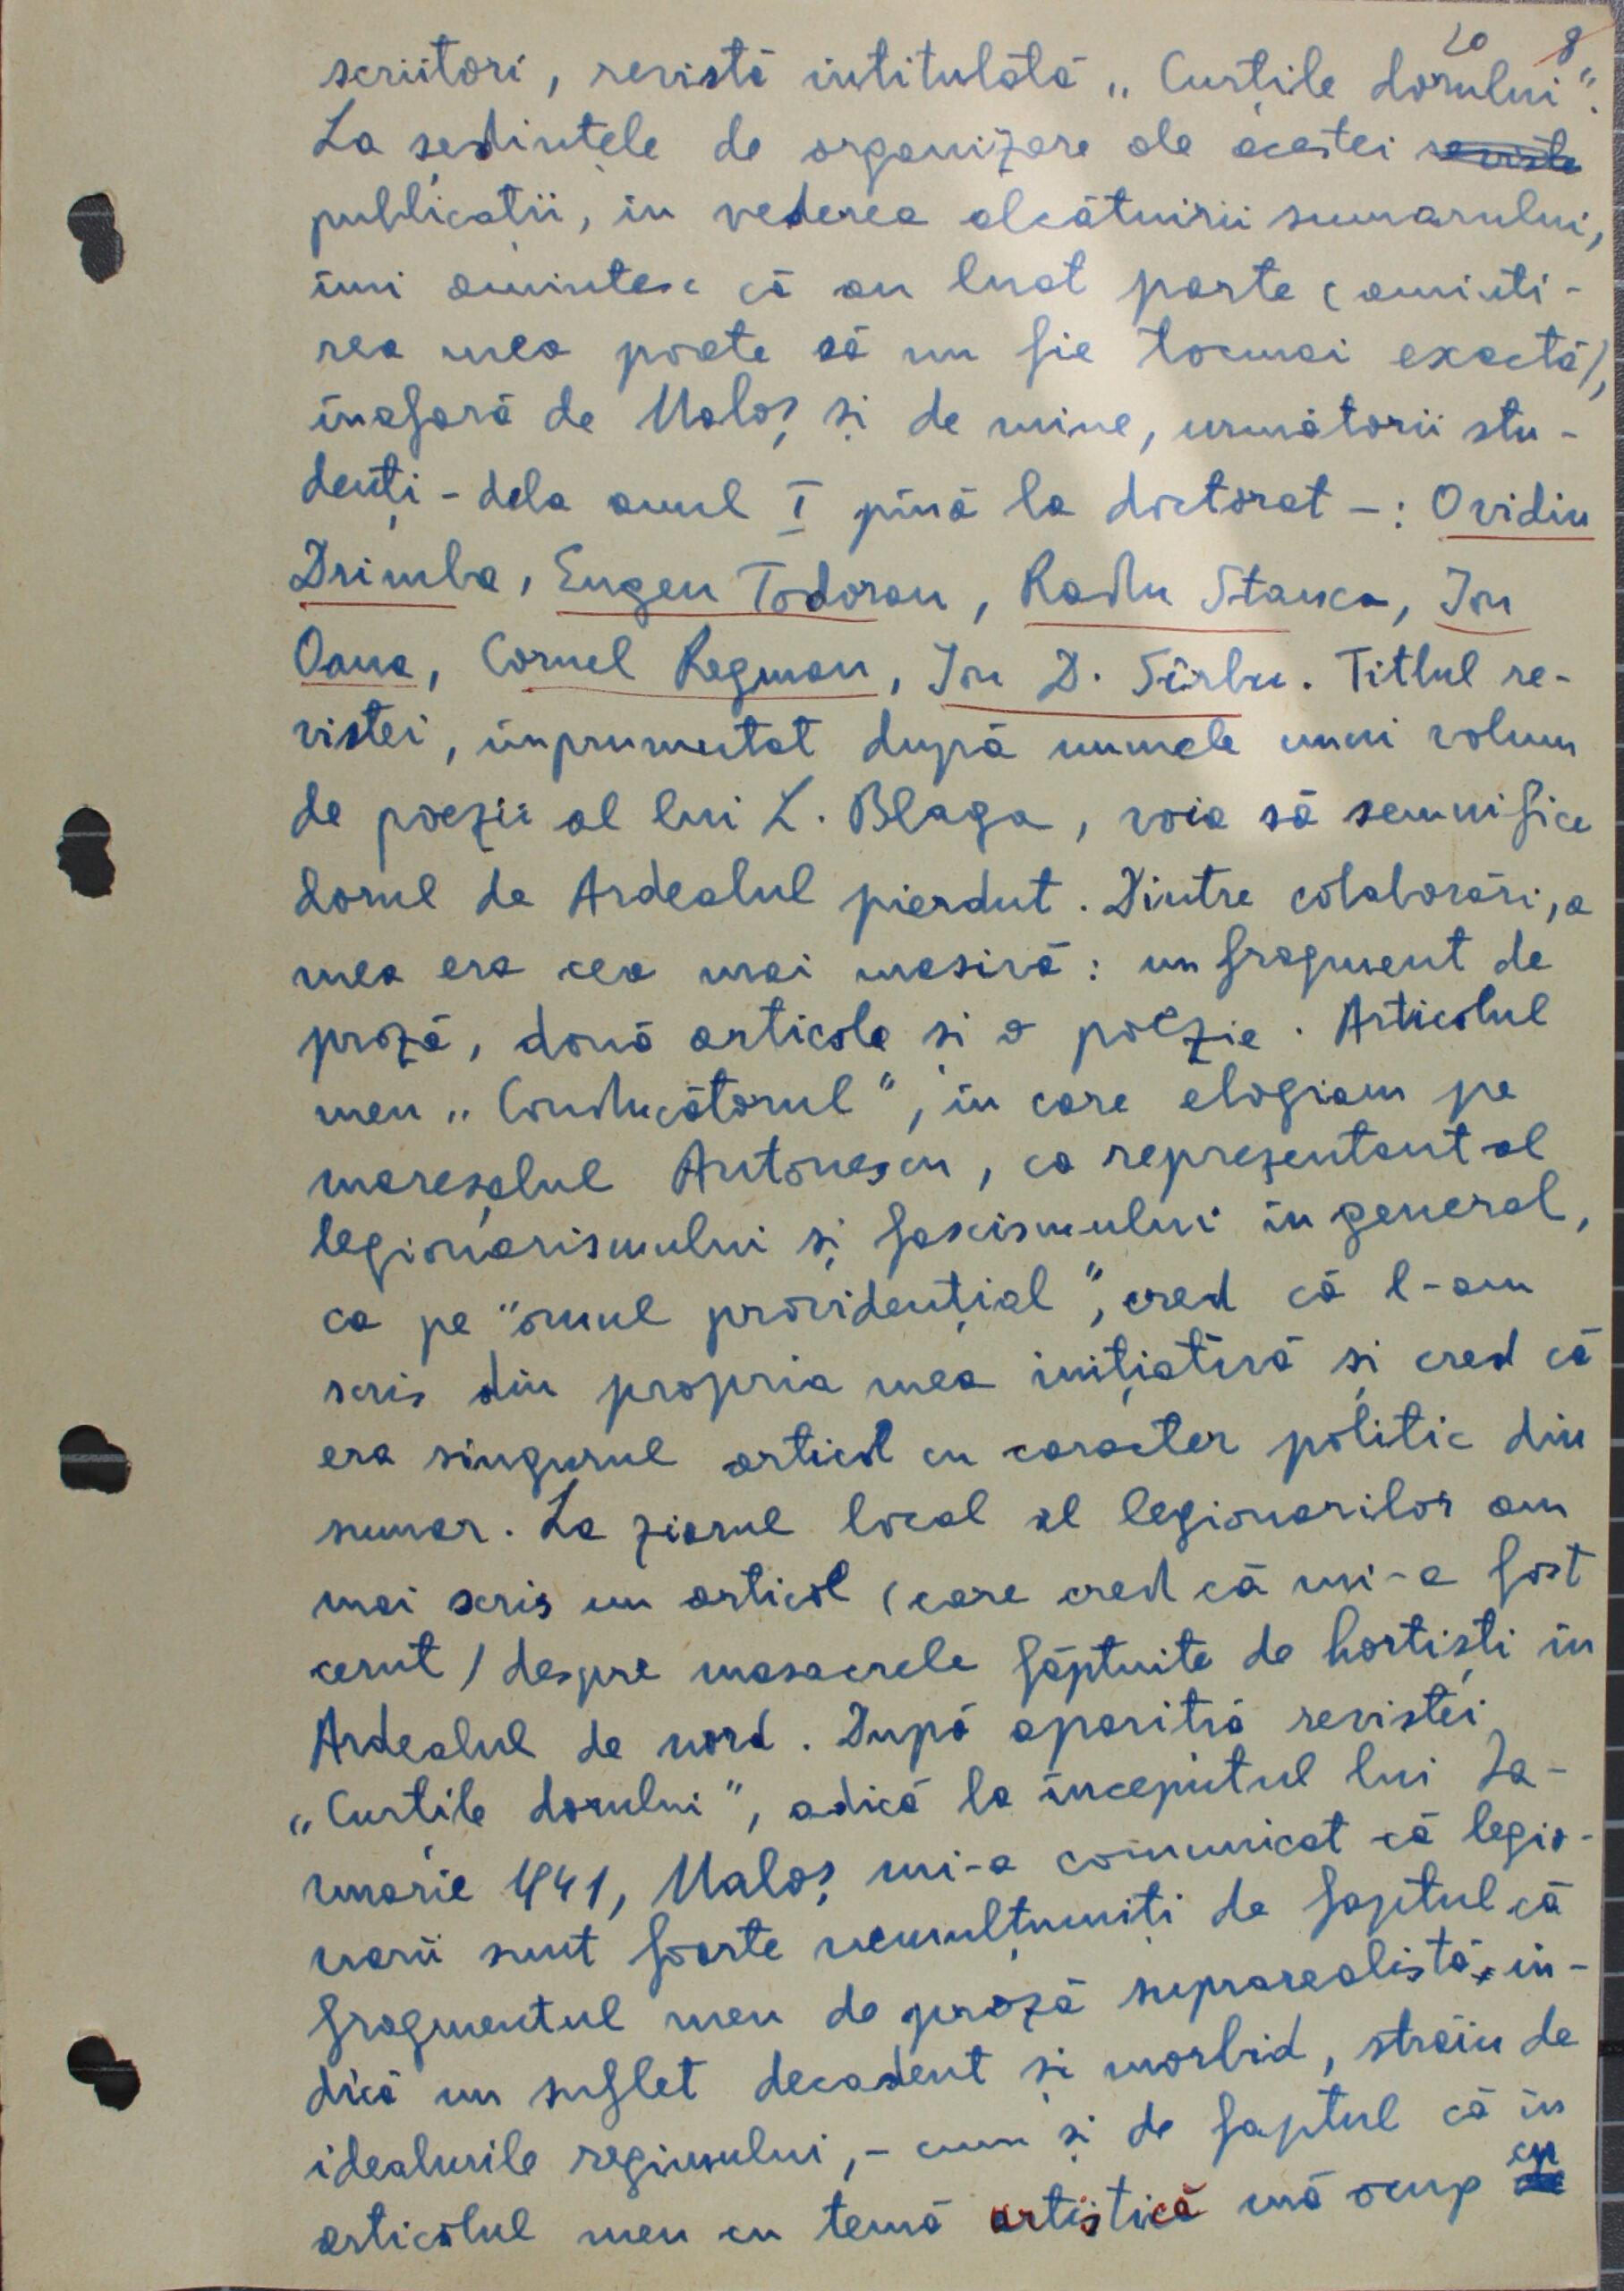 20 8
scriitori, revistă intitulată „Curțile dorului".
La ședințele de organizare ale acestei reviste
publicații, în vederea alcătuirii sumarului,
îmi amintesc că au luat parte (aminti-
rea mea poate să nu fie tocmai exactă),
înafară de Maloș și de mine, următorii stu-
denți - dela anul I pînă la doctorat -: Ovidiu
Drimba, Eugen Todoran, Radu Stanca, Ion
Oana, Cornel Regman, Ion D. Sîrbu. Titlul re-
vistei, împrumutat după numele unui volum
de poezii al lui L. Blaga, voia să semnifice
dorul de Ardealul pierdut. Dintre colaborări, a
mea era cea mai masivă: un fragment de
proză, două articole și o poezie. Articolul
meu „Conducătorul", în care elogiam pe
mareșalul Antonescu, ca reprezentant al
legionarismului și fascismului în general,
ca pe "omul providențial", cred că l-am
scris din propria mea inițiativă și cred că
era singurul articol cu caracter politic din
sumar. La ziarul local al legionarilor am
mai scris un articol (care cred că mi-a fost
cerut) despre masacrele făptuite de hortiști în
Ardealul de nord. După apariția revistei
„Curțile dorului", adică la începutul lui Ia-
nuarie 1941, Maloș mi-a comunicat că legio-
narii sunt foarte nemulțumiți de faptul că
fragmentul meu de proză suprarealistă, in-
dică un suflet decadent și morbid, străin de
idealurile regimului, - cum și de faptul că în
articolul meu cu temă artistică mă ocup cu